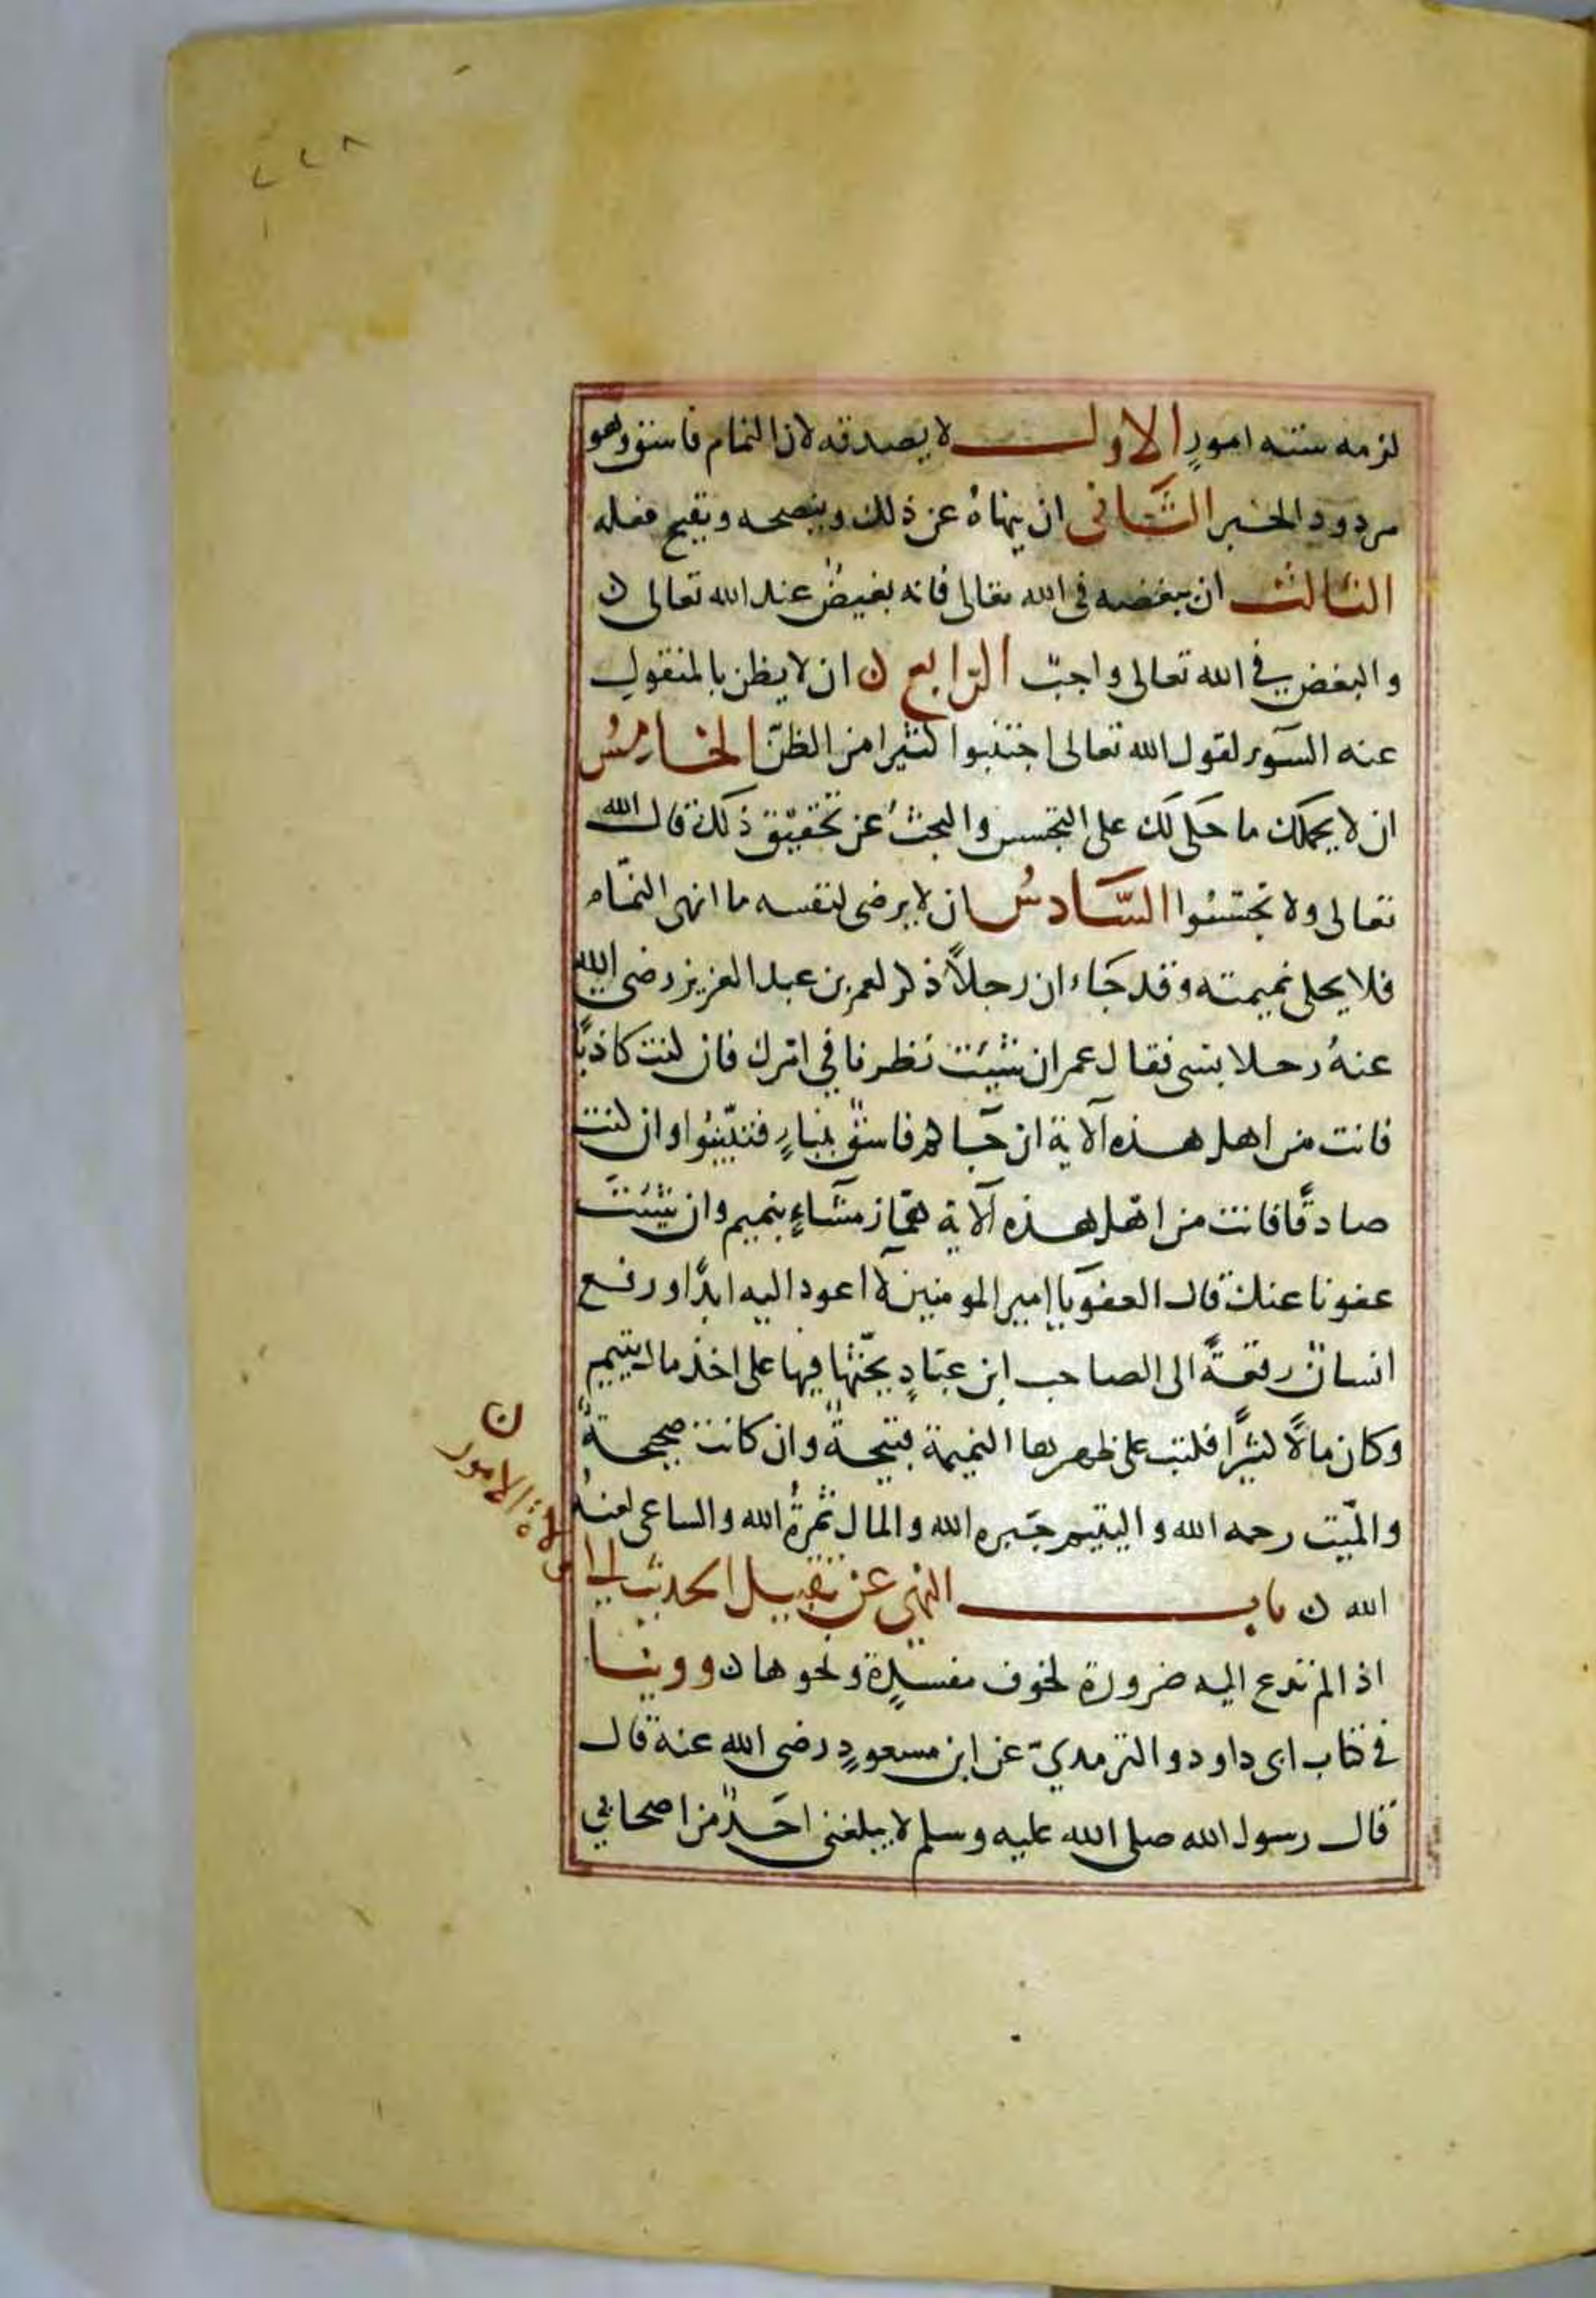 ٢٢٨
لزمه ستة امورٍ الاول لا يصدقه لان النمام فاسق وهو
مردود الخبر الثَّاني ان ينهاهُ عن ذلك وينصحه ويقبح فعله
الثالث ان يبغضه في الله تعالى فانه بغيضٌ عند الله تعالى ن
والبغض في الله تعالى واجبٌ الرّابع ن ان لا يظن بالمنقولِ
عنه السّوء لقول الله تعالى اجتنبوا كثيرا من الظنّ الخامِسُ
ان لا يحملك ما حَكى لَك على التجسس والبحثُ عن تحقيق ذلك قال الله
تعالى ولا تجسّسُوا السَّادسُ ان لا يرضى لنفسه ما انهى النمّام
فلا يحكى نميمته وقد جَاء ان رجلاً ذكر لعمر بن عبد العزيز رضى الله
عنهُ رجلا بشى فقال عمر ان شيئت نظرنا في امرك فان كنت كاذبًا
فانت من اهل هذه الآية ان جَاكم فاسقٌ بنباءٍ فتبيّنُوا وان كنت
صادقًا فانت من اهل هذه الآية همّاز مشّاءٍ بنميم وان شيئتَ
عفونا عنك قال العفو يا امير المومنين لا اعود اليه ابدًا ورفع
انسانٌ رقعةً الى الصاحب ابن عبّادٍ يحثها فيها على اخذ مال يتيم
وكان مالاً كثيرًا فكتب على ظهرها النميمة قبيحةٌ وان كانت صحيحةً
والميّت رحمه الله واليتيم جبره الله والمال ثمرهُ الله والساعى لعنهُ
الله ن باب النهى عن نقل الحديث الى
ولاة الامور ن
اذا لم تدع اليه ضرورة لخوف مفسدةٍ ونحوها ن روينا
في كتاب ابى داود والترمذيّ عن ابن مسعودٍ رضى الله عنه قال
قال رسول الله صلى الله عليه وسلم لا يبلغنى احَدٌ من اصحابي